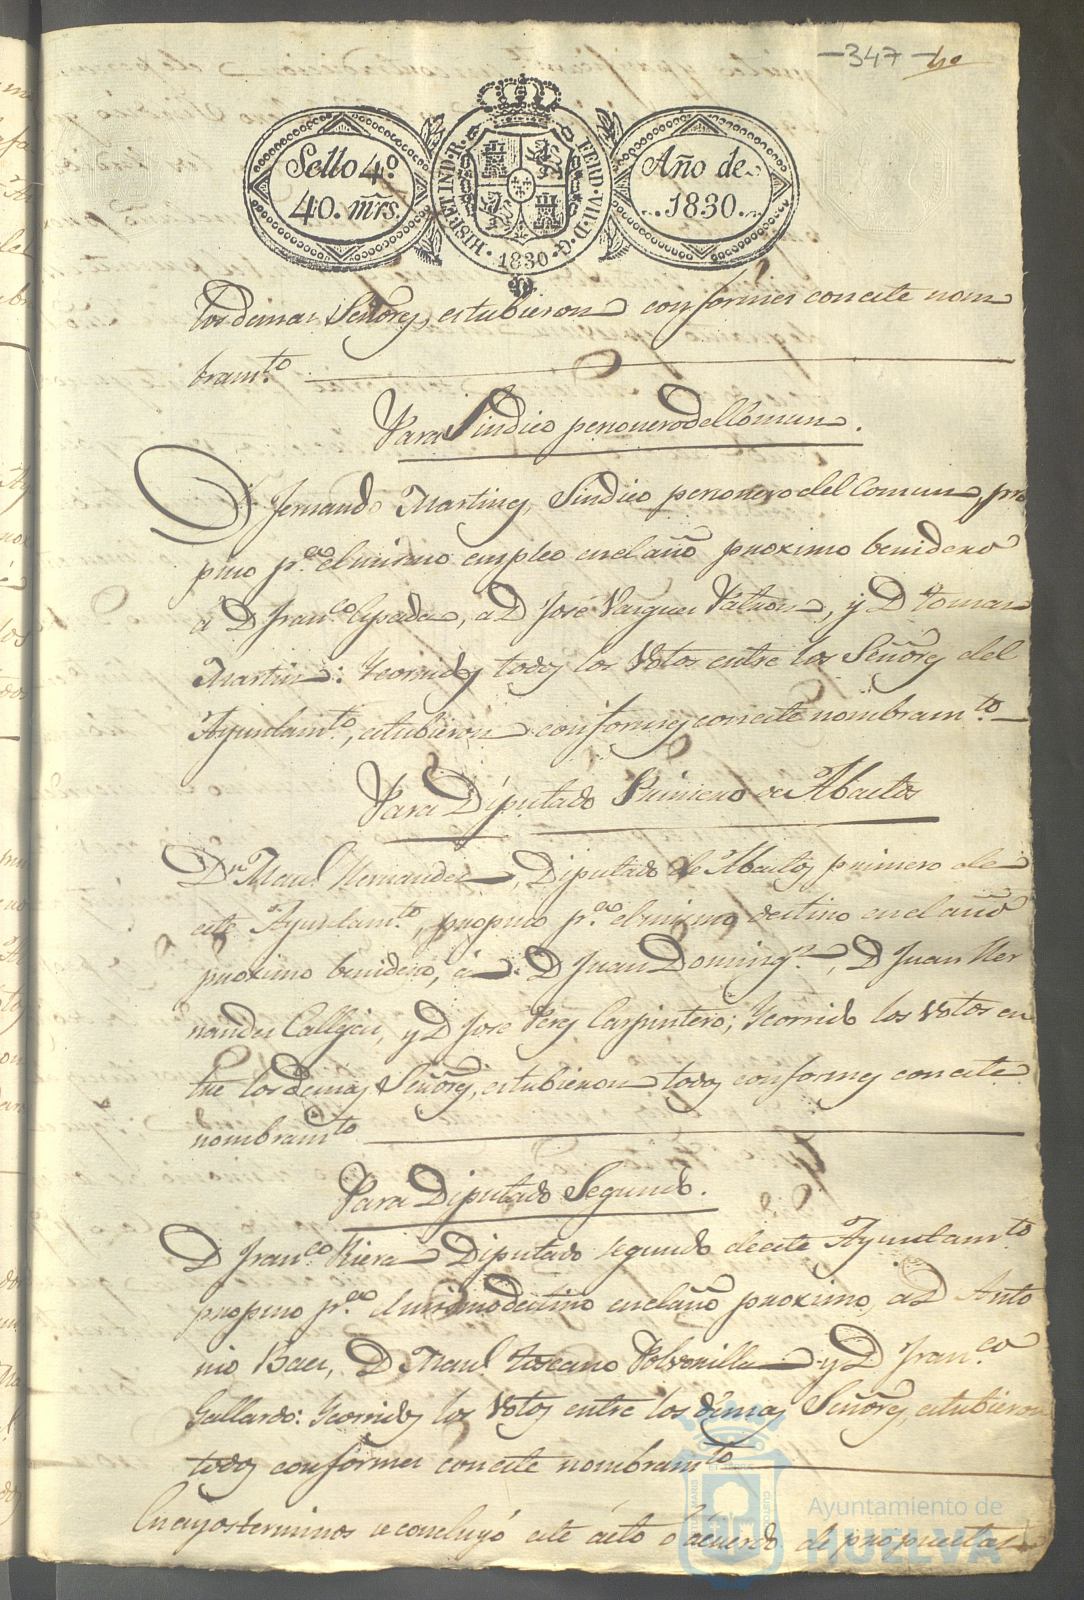 -347-
Sello 4º
40. mrs.
HISP. ET IND. R.
FERD. VII. D. G.
· 1830 ·
Año de
1830.
los demas Señores, estubieron conformes con este nom
bram.to
Para Sindico personero del Comun.
D. Fernando Martinez, Sindico personero del Comun, pro
puso p.a el mismo empleo en el año proximo benidero
á D. Fran.co Cepeda, a D. José Vargues Patron, y D. Tomas
Martin: Y corridos todos los Votos entre los Señores del
Ayuntam.to, estubieron conformes con este nombram.to
Para Diputado Primero de Abastos
D.n Man.l Hernandez, Diputado de Abastos primero de
este Ayuntam.to, propuso p.a el mismo destino en el año
proximo benidero, á D. Juan Doming.z, D. Juan Her
nandez Calleja, y D. Jose Perez Carpintero; Y corrido los Votos en
tre los demas Señores, estubieron todos conformes con este
nombram.to
Para Diputado Segundo.
D. Fran.co Riera Diputado segundo de este Ayuntam.to
propuso p.a el mismo destino en el año proximo, a D. Anto
nio Baez, D. Man.l Toscano Polvorilla y D. Fran.co
Gallardo: Y corridos los Votos entre los demas Señores, estubieron
todos conformes con este nombram.to
En cuyos terminos se concluyó este acto o acuerdo de propuestas
Ayuntamiento de
HUELVA